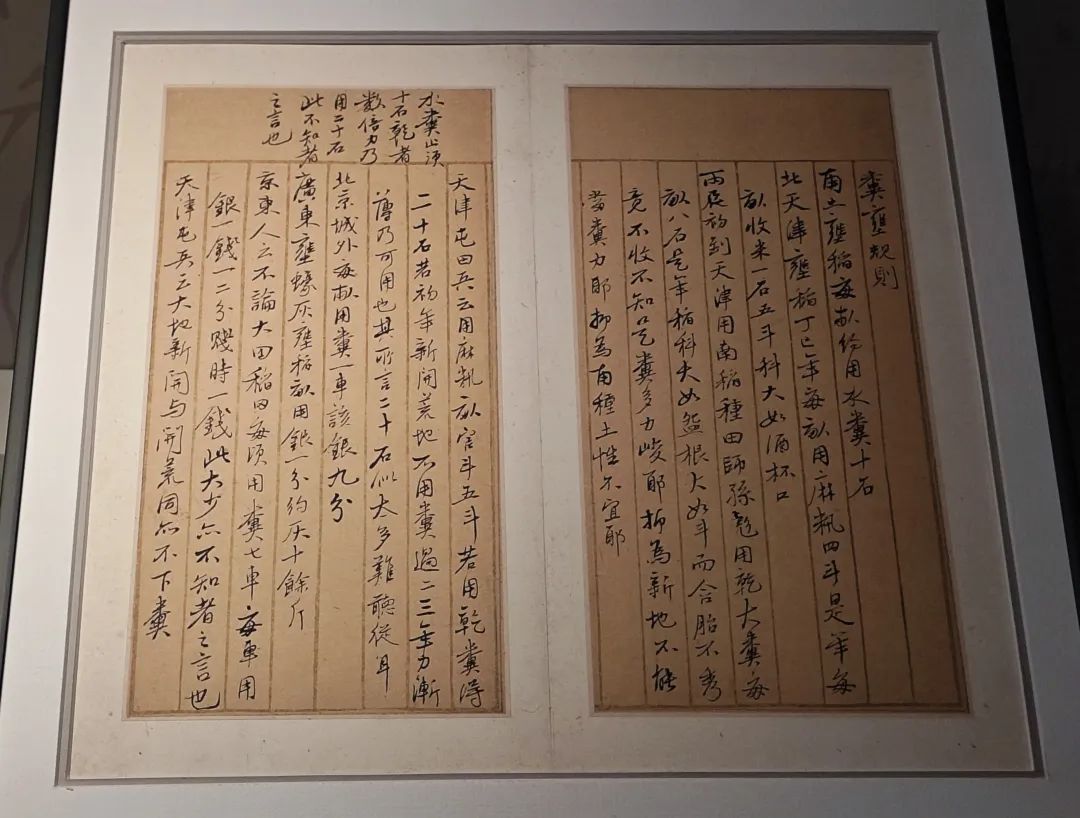 糞壅規則
南土壅稻每畝約用水糞十石
北天津壅稻丁巳年每畝用麻籸四斗是年每
畝收米一石五斗科大如酒杯口
丙辰初到天津用南稻種田師孫彪用乾大糞每
畝八石是年稻科大如盌根大如斗而含胎不秀
竟不收不知是糞多力峻耶抑為新地不能
當糞力耶抑為南種土性不宜耶
水糞止須
十石乾者
數倍力乃
用二十石
此不知者
之言也
天津屯田兵云用麻籸畝官斗五斗若用乾糞得
二十石若初年新開荒地不用糞過二三年力漸
薄乃可用也其所言二十石似太多難聽從耳
北京城外每畝用糞一車該銀九分
廣東壅蠔灰壅稻畝用銀一分約灰十餘斤
京東人云不論大田稻田每頃用糞七車每車用
銀一錢一二分賤時一錢此大少亦不知者之言也
天津屯兵云大地新開与開荒同亦不下糞